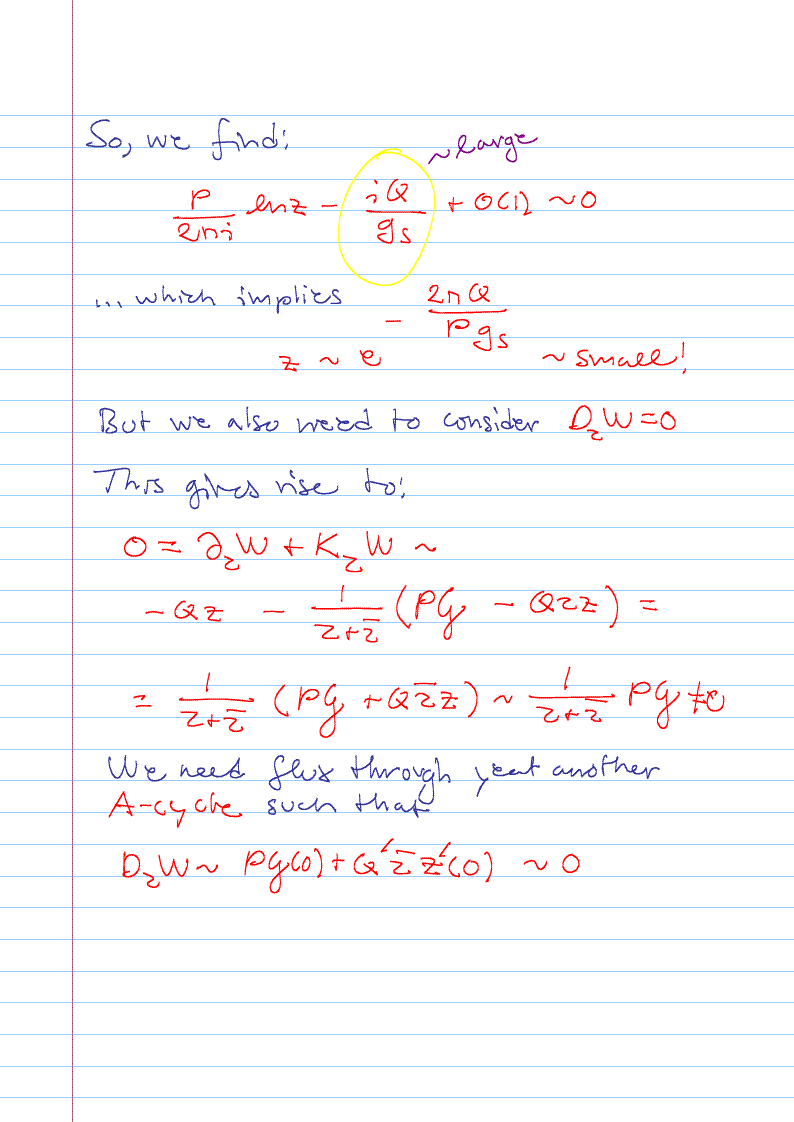 So, we find:
~ large
P/2πi ln z - iQ/gs + O(1) ~ 0
... which implies
z ~ e^(-2πQ/Pgs) ~ small!
But we also need to consider D_τ W = 0
This gives rise to:
0 = ∂_τ W + K_τ W ~
- Qz - 1/(τ+τ̄) (PG - Qτz) =
= 1/(τ+τ̄) (PG + Qτ̄z) ~ 1/(τ+τ̄) PG ≠ 0
We need flux through yeat another
A-cycle such that
D_τ W ~ PG(0) + Q'τ̄z'(0) ~ 0